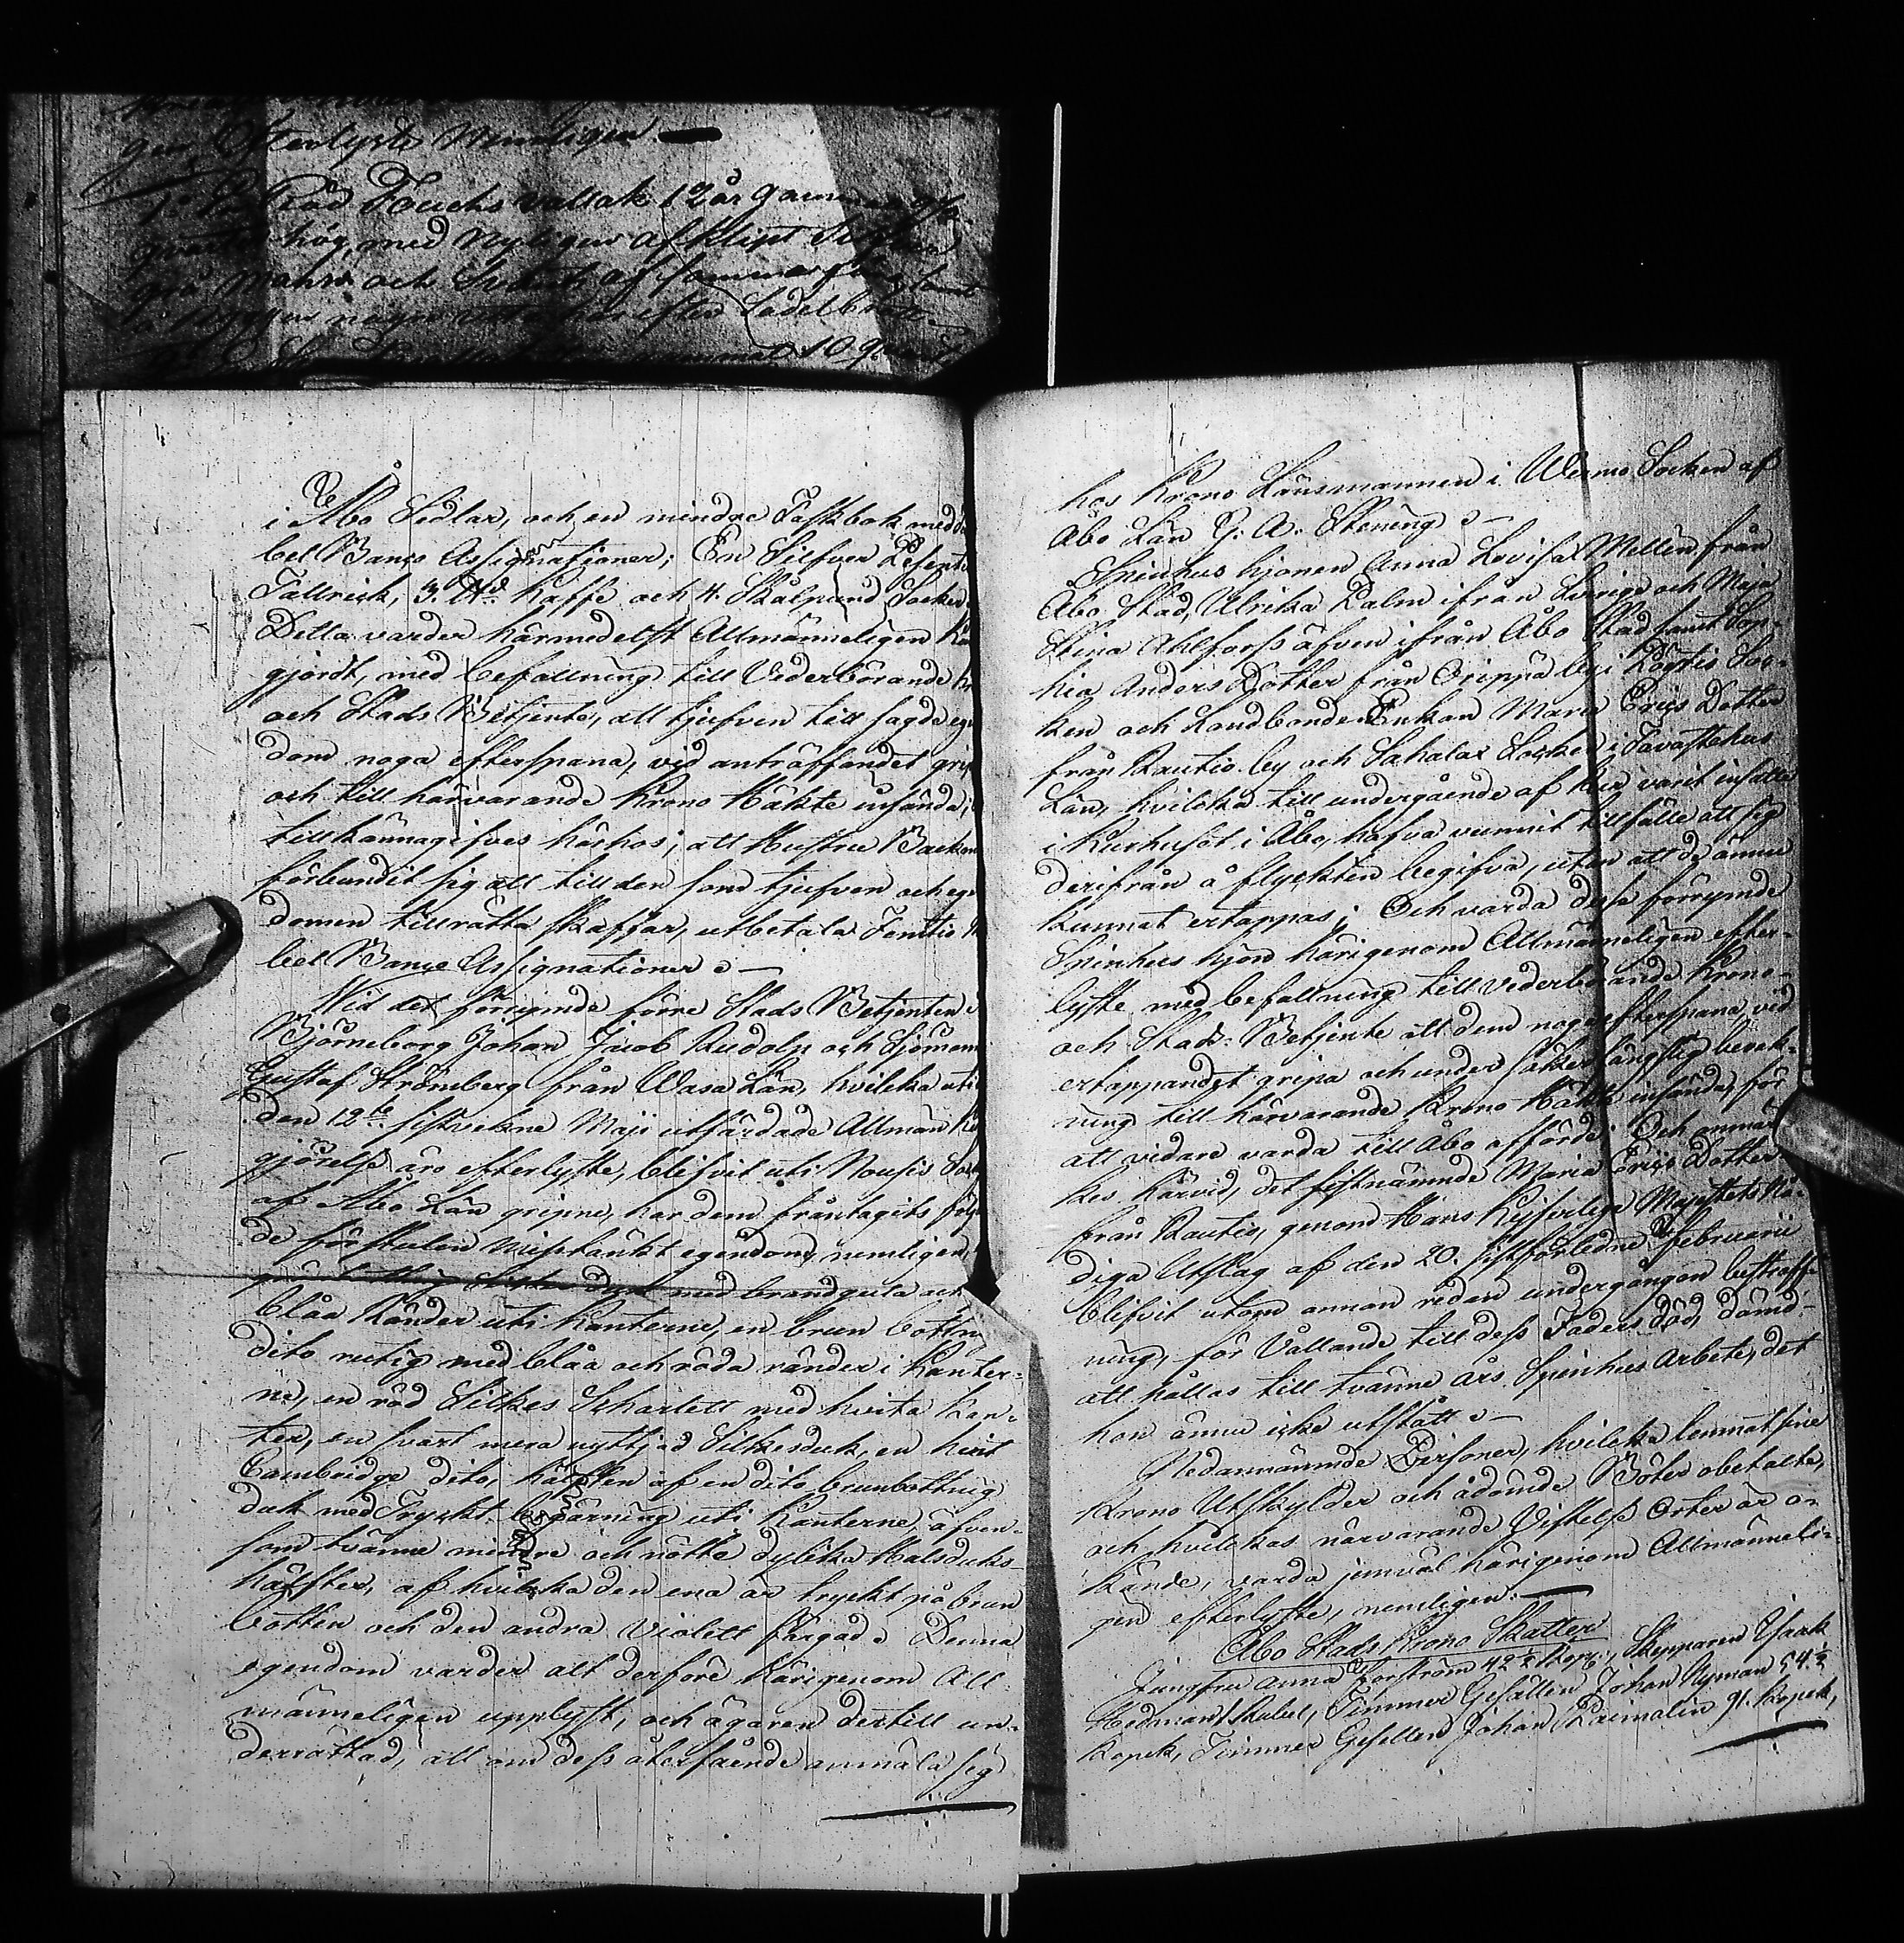 gen Efterlyste Nemligen
1o En Röd Fuchs vallak 12 år gammal 9 1/2
qvarter hög, med nyligen afklipt
grå Mahn och Svants af samma färg samt
på Ryggen några efter Sadelbrott
gammal 10 qvart
i Åbo Sedlar, och en mindre Taskbok med
bel Banco Assignationer; En Silfver Presenter
Tallrick, 3. Kaffe och 4. Skålpund Socker.
Detta varder härmedelst Allmänneligen
gjordt, med befallning till Vederbörande
och Stads Betjente, att tjufven till sagde
dom noga efterspana, vid anträffandet
och till härvarande Krono Häkte insända;
tillkännagifves härhos; att Hustru
förbundit sig att till den som tjufven och
domen tillrätta skaffar, utbetala Femtio
bel Banco Assignationer.
Vid det förrymde förre Stads Betjenten i
Björneborg Johan Jacob Rudolph och Sjöman
Gustaf Strömberg från Wasa Län, hvilcka uti
den 12te sistvekne Maji utfärdade Allmän
görelse äro efterlyste, blifvit uti Nousis
af Åbo Län gripne, har dem fråntagits
de förstulen misstänkt egendom, nemligen,
duk med brandgula och
blåa Ränder uti Kanterne, en brun bottnig
dito rutig med blåa och röda ränder i Kanter-
ne, en röd Silkes Scharlett med hvita Kan-
ter, en svart mera nyttjad Silkesduk, en hvit
Cambridge dito, hälften af en dito brunbottnig
duk med Tryckt bogärning uti Kanterne, äfven-
som tvänne mindre och nötte dylika Halsduks
hälfter, af hvilka den ena är tryckt på brun
botten och den andra Violett färgad. Denna
egendom varder alt derföre härigenom All-
männeligen upplyst, och ägaren dertill un-
derrättad, att om dess återfående anmäla sig
hos Krono Länsmannen i Wemo Socken af
Åbo Län G. A. Stening.
Spinhus hjonen Anna Lovisa Mellin från
Åbo Stad, Ulrika Palm ifrån Sverige och Maja
Stina Ahlforss äfven ifrån Åbo Stad samt Sop-
hia Anders Dotter från Orippä by i Pöytis Soc-
ken och Landbonde Enkan Maria Eriks Dotter
från Rautio by och Sahalax Socken i Tavastehus
Län, hvilcka till undergående af Kur varit insatte
i Kurhuset i Åbo, hafva vunnit tillfälle att sig
derifrån å flyckten begifva, utan att de ännu
kunnat ertappas; Och varda desse förrymde
Spinhus hjon härigenom Allmänneligen efter-
lyste med befallning till vederbörande Krono-
och Stads Betjente att dem noga efterspana, vid
ertappandet gripa och under säker fängslig bevak-
ning till härvarande Krono Häkte insända, för
att vidare varda till Åbo afförde; Och anmär-
kes härvid, det sistnämnde Maria Eriks Dotter
från Rautio, genom Hans Kejserliga Majestets Nå-
diga Utslag af den 20. sistförledne Februarii
blifvit utom annan redan undergången bestraff-
ning, för Vållande till dess Faders död, dömd
att hållas till tvänne års Spinhus Arbete, det
hon ännu icke utstått.
Nedannämnde Personer, hvilcka lemnat sine
Krono Utskylder och ådömde Böter obetalte,
och hvilckas närvarande Vistelse Orter är o-
kände, varda jemväl härigenom Allmänneli-
gen efterlyste, nemligen.
Åbo Stads Krono Skatter
Jungfru Anna Forsström 42 1/2 Kop:, Skepparen Isaak
Hedman 1 Rubel, Timmer Gesällen Johan Nyman 54 1/2
Kopek, Timmer Gesellen Johan Raimalin 91 Kopek,